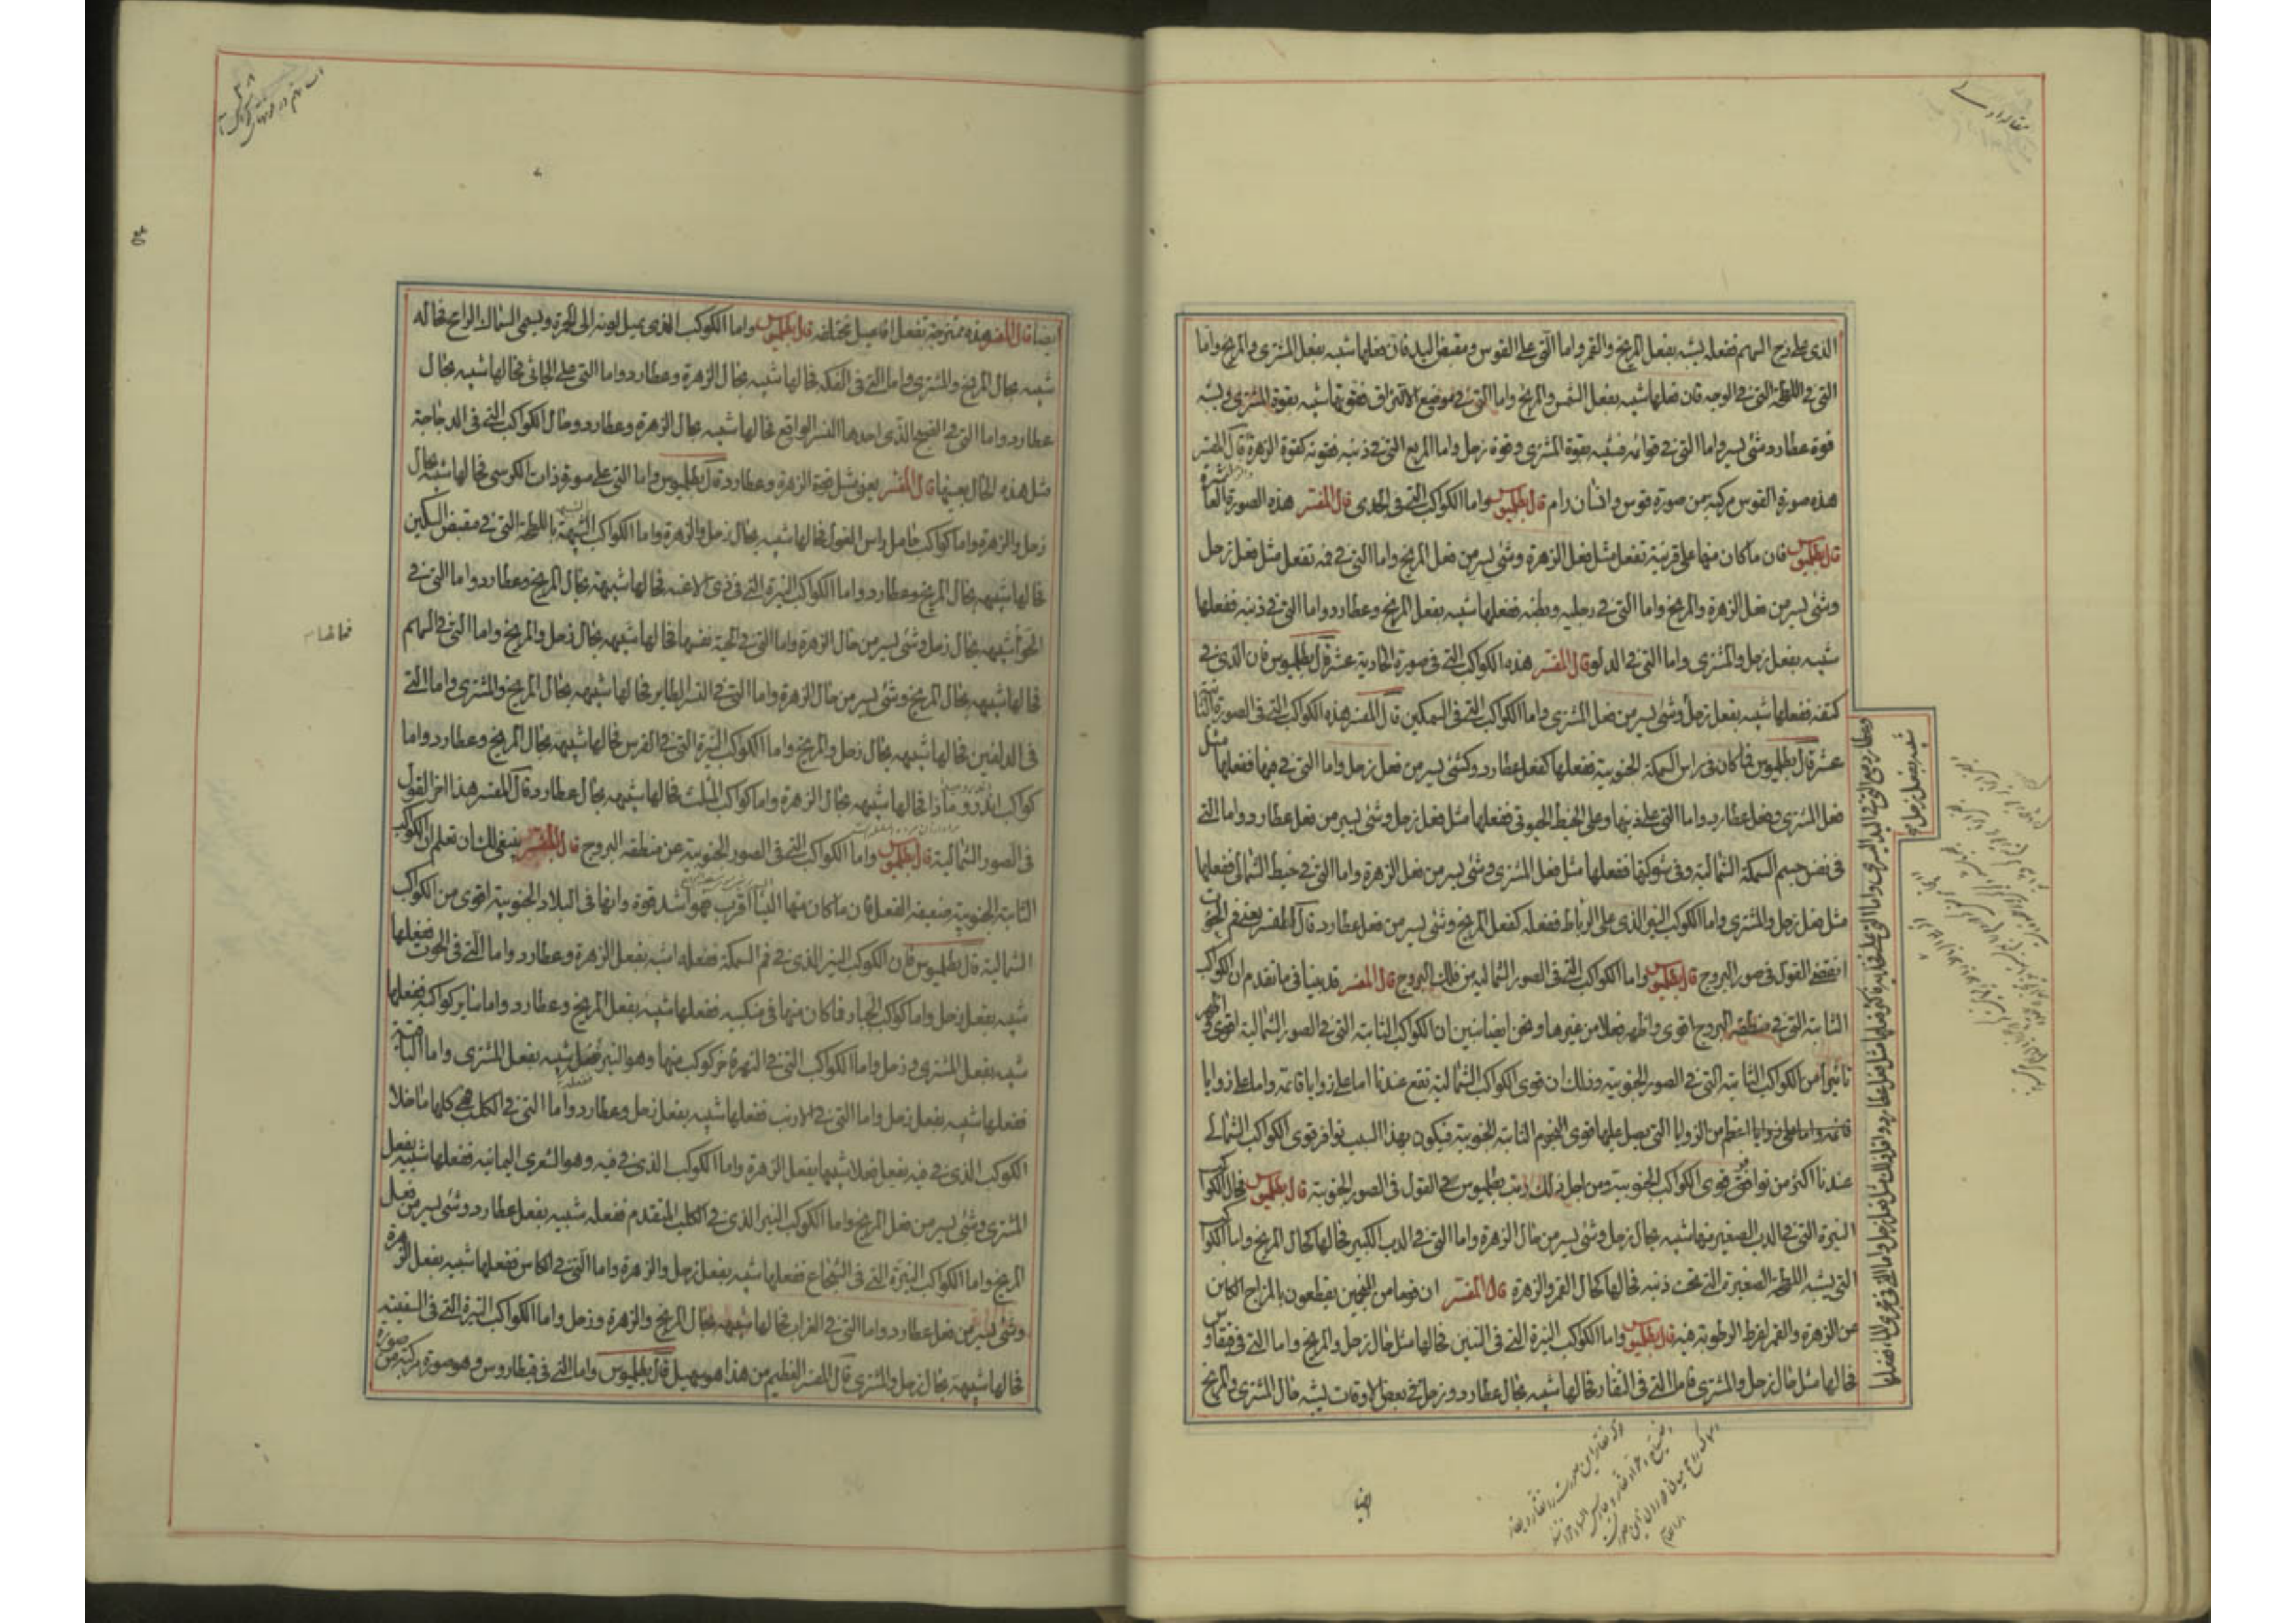 الذى على زج السهم ففعله يشبه بفعل المريخ والقمر واما التى على القوس ومقبض اليد فان فعلها شبيه بفعل المشترى والمريخ واما
التى فى اللطخة التى فى الوجه فان فعلها شبيه بفعل الشمس والمريخ واما التى فى موضع الالتزاق فقوتها شبيه بقوة المشترى ويشبه
قوة عطارد شئ يسير واما التى فى قوائمه فشبيه بقوة المشترى وقوة زحل واما المربع التى فى ذنبه فقوته كقوة الزهرة قال المفسر
هذه صورة القوس مركبة من صورة قوس وانسان رام قال بطلميوس واما الكواكب التى فى الجدى قال المفسر هذه الصورة العاشرة
قال بطلميوس فان ما كان منها على قرنيه تفعل مثل فعل الزهرة وشئ يسير من فعل المريخ واما التى فى فمه تفعل مثل فعل زحل
وشئ يسير من فعل الزهرة والمريخ واما التى فى رجليه وبطنه ففعلها شبيه بفعل المريخ وعطارد واما التى فى ذنبه ففعلها
شبيه بفعل زحل والمشترى واما التى فى الدلو قال المفسر هذه الكواكب التى فى صورة الحادية عشر قال بطلميوس فان الذى فى
كتفه ففعلها شبيه بفعل زحل وشئ يسير من فعل المشترى واما الكواكب التى فى السمكين قال المفسر هذه الكواكب التى فى الصورة الثانية
عشرة قال بطلميوس فما كان فى راس السمكة الجنوبية ففعلها كفعل عطارد وكشئ يسير من فعل زحل واما التى فى فمها ففعلها مثل
فعل المشترى وفعل عطارد واما التى على ذنبها وعلى الخيط الجنوبى ففعلها مثل فعل زحل وشئ يسير من فعل عطارد واما التى
فى نفس جسم السمكة الشمالية وفى شوكها ففعلها مثل فعل المشترى وشئ يسير من فعل الزهرة واما التى فى خيط الشمالى ففعلها
مثل فعل زحل والمشترى واما الكوكب النير الذى على الرباط ففعله كفعل المريخ وشئ يسير من فعل عطارد قال المفسر يعنى فم الحوت
انقضى القول فى صور البروج قال بطلميوس واما الكواكب التى فى الصور الشماليه من فلك البروج قال المفسر قد بينا فى ما تقدم ان الكواكب
الثابتة التى فى منطقه البروج اقوى واظهر فعلا من غيرها ونحن ايضا نبين ان الكواكب الثابته التى فى الصور الشمالية اقوى واظهر
تاثيرا من الكواكب الثابتة التى فى الصور الجنوبيه وذلك ان قوى الكواكب الشمالية تقع عندنا اما على زوايا قائمة واما على زوايا
قائمه واما على زوايا اعظم من الزوايا التى يصل عليها قوى النجوم الثابتة الجنوبية فيكون بهذا السبب توافر قوى الكواكب الشمالى
عندنا اكثر من توافق قوى الكواكب الجنوبية ومن اجل ذلك رتب بطلميوس القول فى الصور الجنوبية قال بطلميوس فحال الكواكب
النيرة التى فى الدب الصغير منها شبيه بحال زحل وشئ يسير من حال الزهرة واما التى فى الدب الكبير فحالها كحال المريخ واما الكواكب
التى يشبه اللطخة الصغيرة التى تحت ذنبه فحالها كحال القمر والزهرة قال المفسر ان قوما من المنجمين يقطعون بالمزاج الكاين
من الزهرة والقمر لفرط الرطوبة فيه قال بطلميوس واما الكواكب النيرة التى فى التنين فحالها مثل حال زحل والمريخ واما التى فى قيقاوس
فحالها مثل حال زحل والمشترى فاما التى فى النقار فحالها شبيه بحال عطارد وزحل فى بعض الاوقات يشبه حال المشترى والمريخ
شبيه بفعل زحل
ايضا
ايضا قال المفسر هذه ممتزجة تفعل افاعيل مختلفه قال بطلميوس واما الكوكب الذى يميل لونه الى الحمرة ويسمى السماك الرامح فحاله
شبيه بحال المريخ والمشترى واما التى فى الفكه فحالها شبيه بحال الزهرة وعطارد واما التى على الجاثى فحالها شبيه بحال
عطارد واما التى فى الصنج الذى احدها النسر الواقع فحالها شبيه بحال الزهرة وعطارد وحال الكواكب التى فى الدجاجة
مثل هذه الحال بعينها قال المفسر يعنى مثل قوة الزهرة وعطارد قال بطلميوس واما التى على صورة ذات الكرسى فحالها شبيه بحال
زحل والزهرة واما كواكب حامل راس الغول فحالها شبيه بحال زحل والزهرة واما الكواكب الشبيهة باللطخة التى فى مقبض السكين
فحالها شبيهه بحال المريخ وعطارد واما الكواكب النيرة التى فى ذى الاعنه فحالها شبيهة بحال المريخ وعطارد واما التى فى
الحوا شبيهه بحال زحل وشئ يسير من حال الزهرة واما التى فى الحية نفسها فحالها شبيهه بحال زحل والمريخ واما التى فى السهم
فحالها شبيهه بحال المريخ وشئ يسير من حال الزهرة واما التى فى النسر الطاير فحالها شبيهه بحال المريخ والمشترى واما التى
فى الدلفين فحالها شبيهه بحال زحل والمريخ واما الكواكب النيرة التى فى الفرس فحالها شبيهه بحال المريخ وعطارد واما
كواكب اندروماذا فحالها شبيهه بحال الزهرة واما كواكب المثلث فحالها شبيهه بحال عطارد قال المفسر هذا اخر القول
فى الصور الشمالية قال بطلميوس واما الكواكب التى فى الصور الجنوبية عن منطقه البروج قال المفسر ينبغى لك ان تعلم ان الكواكب
الثابتة الجنوبية ضعيفه الفعل فان ما كان منها الينا اقرب فهو اشد قوة وانها فى البلاد الجنوبية اقوى من الكواكب
الشمالية قال بطلميوس فان الكوكب النير الذى فى فم السمكة ففعله اشبه بفعل الزهرة وعطارد واما التى فى الحوت ففعلها
شبيه بفعل زحل واما كوكب الجبار فما كان منها فى منكبيه ففعلها شبيه بفعل المريخ وعطارد واما ساير كواكبه ففعلها
شبيه بفعل المشترى وزحل واما الكواكب التى فى النهر فاخر كوكب منها وهو النير ففعل شبيه بفعل المشترى واما الباقية
ففعلها شبيه بفعل زحل واما التى فى الارنب ففعلها شبيه بفعل زحل وعطارد واما التى فى الكلب فهى كلها ما خلا
الكوكب الذى فى فيه يفعل فعلا شبيها بفعل الزهرة واما الكوكب الذى فى فيه وهو الشعرى اليمانيه ففعلها شبيه بفعل
المشترى وشئ يسير من فعل المريخ واما الكوكب النير الذى فى الكلب المتقدم ففعله شبيه بفعل عطارد وشئ يسير من فعل
المريخ واما الكواكب النيرة التى فى الشجاع ففعلها شبيه بفعل زحل والزهرة واما التى فى الكاس ففعلها شبيه بفعل الزهرة
وشئ يسير من فعل عطارد واما التى فى الغراب فحالها شبيهه بحال المريخ والزهرة وزحل واما الكواكب النيرة التى فى السفينه
فحالها شبيهة بحال زحل والمشترى قال المفسر العظيم من هذا هو سهيل قال بطلميوس واما التى فى قيطاروس وهو صورة مركبة من صورة